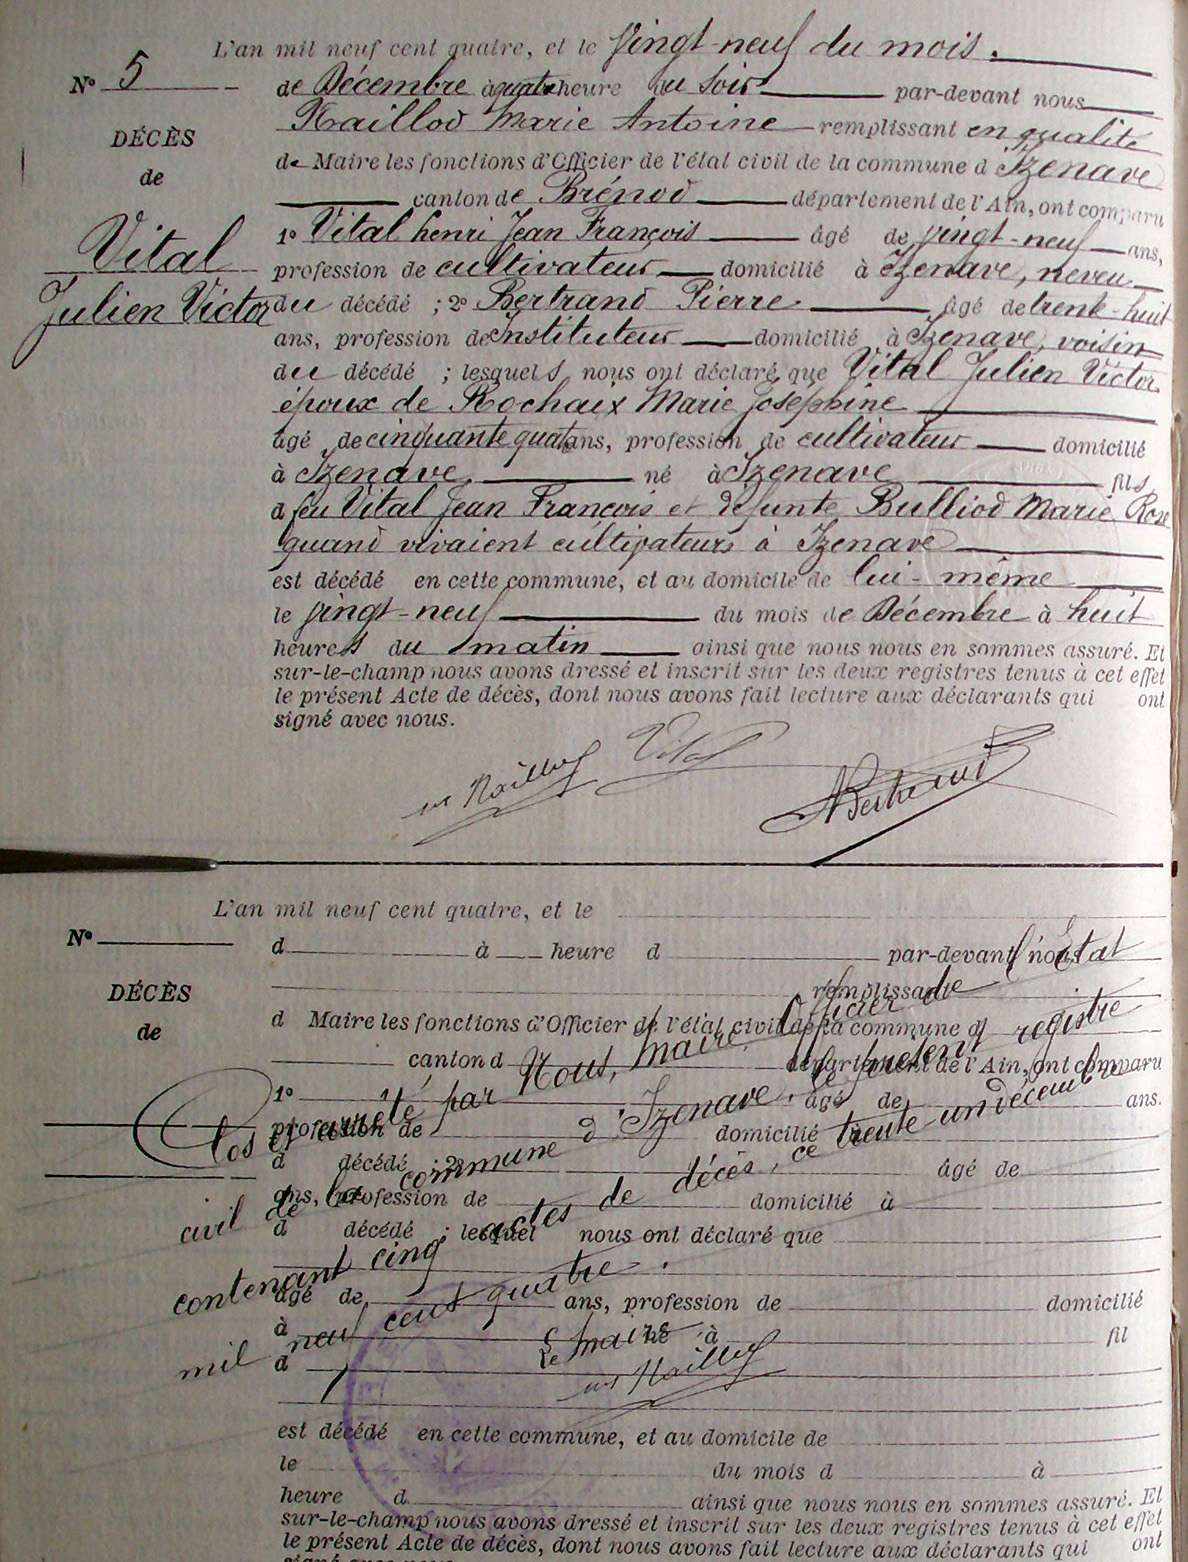 L'an mil neuf cent quatre, et le vingt-neuf du mois
N° 5
de Décembre à quatre heure du soir par-devant nous
DÉCÈS
Maillod Marie Antoine remplissant en qualité
de
de Maire les fonctions d'Officier de l'état civil de la commune d Izenave
canton de Brénod département de l'Ain, ont comparu
Vital
1° Vital henri Jean François âgé de vingt-neuf ans,
profession de cultivateur domicilié à Izenave, neveu
Julien Victor
du décédé ; 2° Bertrand Pierre âgé de trente-huit
ans, profession de Instituteur domicilié à Izenave, voisin
du décédé ; lesquels nous ont déclaré que Vital Julien Victor
époux de Rochaix Marie Joséphine
âgé de cinquante quatre ans, profession de cultivateur domicilié
à Izenave, né à Izenave fils
d feu Vital Jean François et défunte Bulliod Marie Rose
quand vivaient cultivateurs à Izenave
est décédé en cette commune, et au domicile de lui-même
le vingt-neuf du mois de Décembre à huit
heures du matin ainsi que nous nous en sommes assuré. Et
sur-le-champ nous avons dressé et inscrit sur les deux registres tenus à cet effet
le présent Acte de décès, dont nous avons fait lecture aux déclarants qui ont
signé avec nous.
Maillod Vital Bertrand
L'an mil neuf cent quatre, et le
N°
d à heure d par-devant nous
DÉCÈS
remplissant
de
d Maire les fonctions d'Officier de l'état civil de la commune d
canton d département de l'Ain, ont comparu
1° âgé de ans.
profession de domicilié à
d décédé ; 2° âgé de
ans, profession de domicilié à
d décédé ; lesquel nous ont déclaré que
âgé de ans, profession de domicilié
à né à fil
d
Clos et arrêté par Nous, Maire, Officier de l'Etat
civil de la commune d'Izenave, le présent registre
contenant cinq actes de décès, ce trente un décembre
mil neuf cent quatre.
Le Maire
Maillod
est décédé en cette commune, et au domicile de
le du mois d à
heure d ainsi que nous nous en sommes assuré. Et
sur-le-champ nous avons dressé et inscrit sur les deux registres tenus à cet effet
le présent Acte de décès, dont nous avons fait lecture aux déclarants qui ont
signé avec nous.